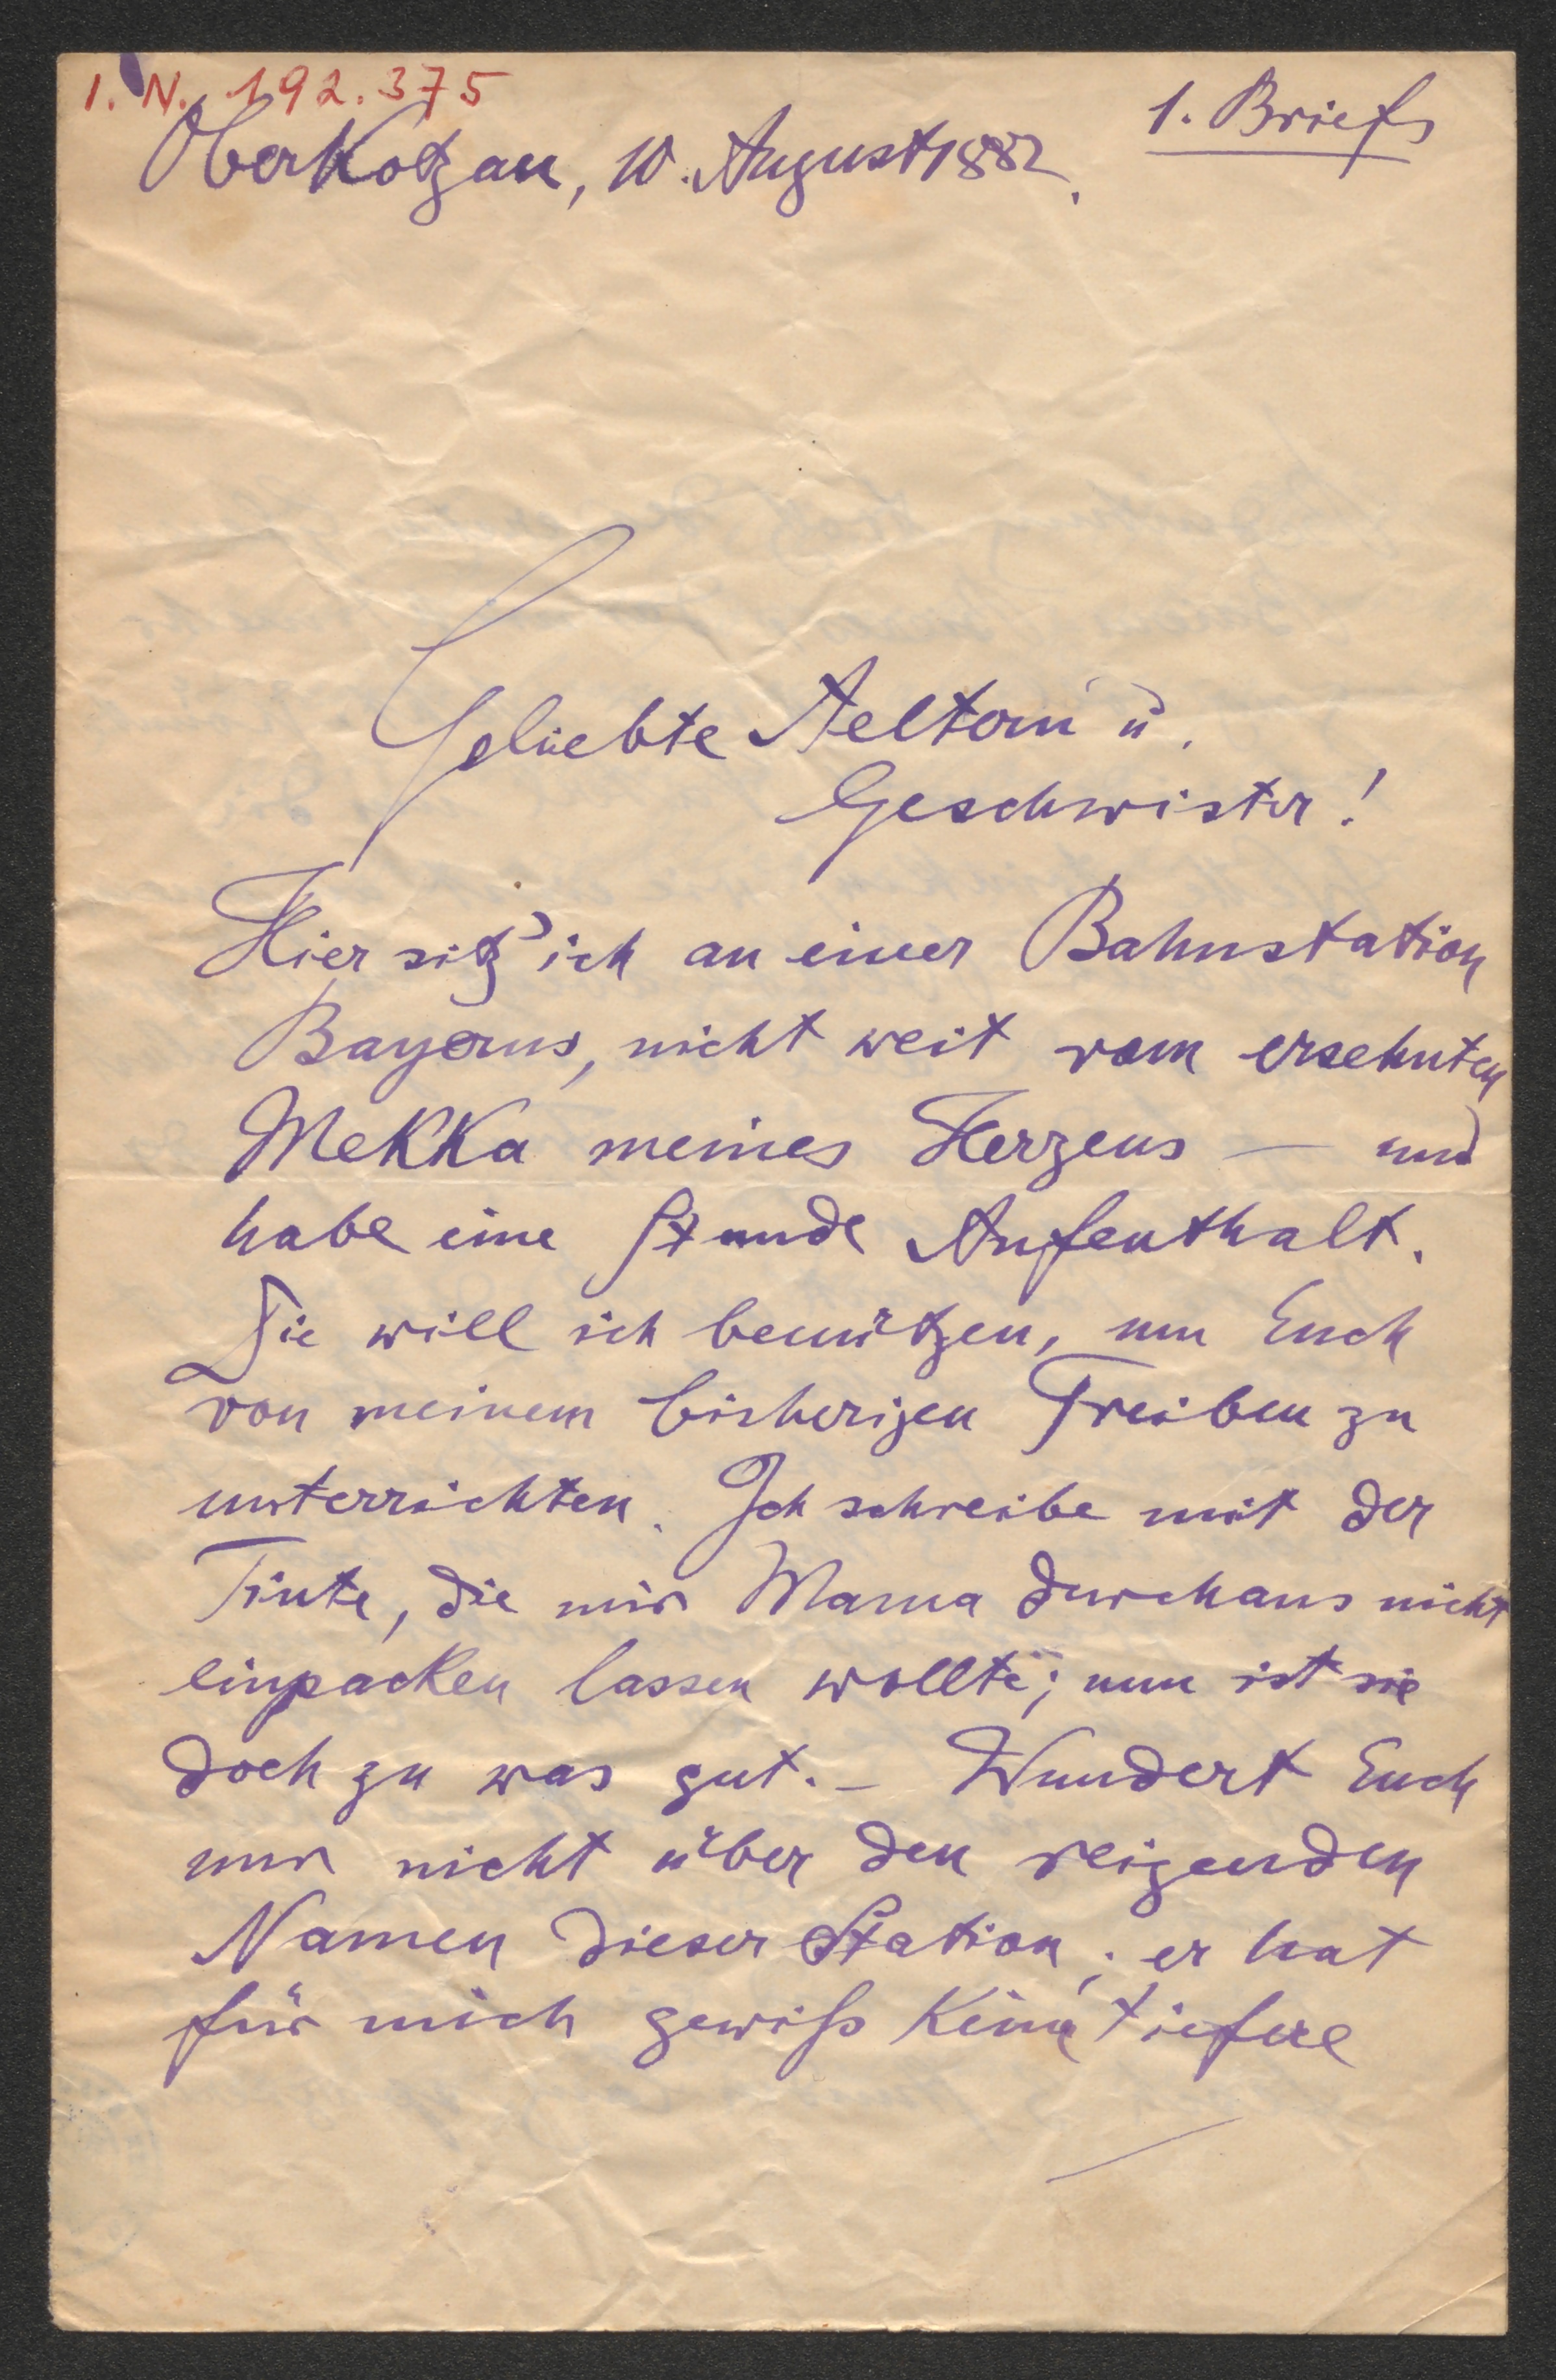 I. N. 192.375
1. Brief
Oberkotzau, 10. August 1882.
Geliebte Aeltern u.
Geschwister!
Hier sitz' ich an einer Bahnstation
Bayerns, nicht weit vom ersehnten
Mekka meines Herzens — und
habe eine Stunde Aufenthalt.
Die will ich benützen, um Euch
von meinem bisherigen Treiben zu
unterrichten. Ich schreibe mit der
Tinte, die mir Mama durchaus nicht
einpacken lassen wollte; nun ist sie
doch zu was gut. – Wundert Euch
nur nicht über den reizenden
Namen dieser Station; er hat
für mich gewiß keine tiefere